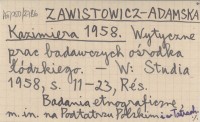 ZAWISTOWICZ-ADAMSKA
Kazimiera 1958. Wytyczne
prac badawczych ośrodka
łódzkiego. — W: Studia
1958, s. 11-23, Rés.
Badania etnograficzne,
m.in. na Podtatrzu Polskim i w Tatrach.